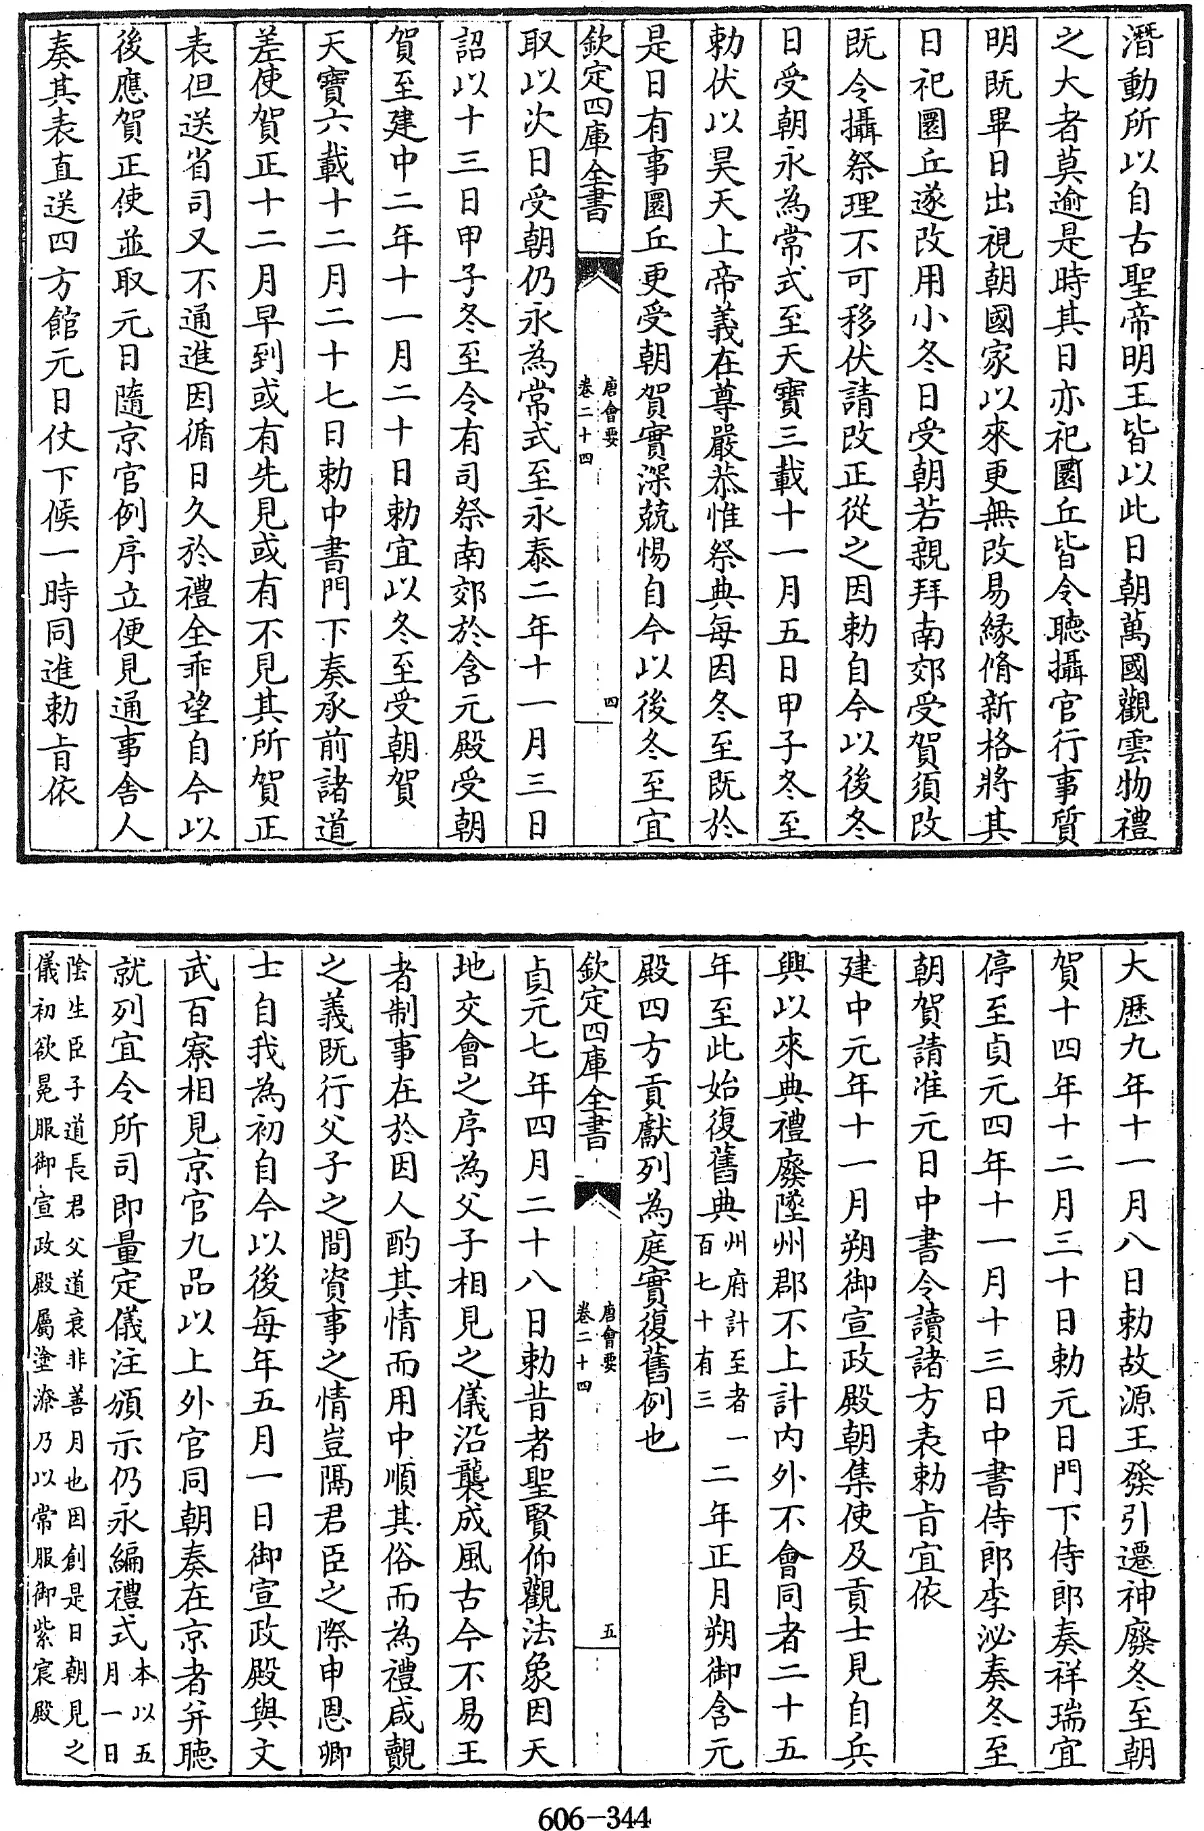 潛動所以自古聖帝明王皆以此日朝萬國觀雲物禮
之大者莫逾是時其日亦祀圜丘皆令聽攝官行事質
明既畢日出視朝國家以來更無改易緣脩新格將其
日祀圜丘遂改用小冬日受朝若親拜南郊受賀須改
既令攝祭理不可移伏請改正從之因勅自今以後冬
日受朝永為常式至天寶三載十一月五日甲子冬至
勅伏以昊天上帝義在尊嚴恭惟祭典每因冬至既於
是日有事圜丘更受朝賀實深兢惕自今以後冬至宜
欽定四庫全書
唐會要
卷二十四
四
取以次日受朝仍永為常式至永泰二年十一月三日
詔以十三日甲子冬至令有司祭南郊於含元殿受朝
賀至建中二年十一月二十日勅宜以冬至受朝賀
天寶六載十二月二十七日勅中書門下奏承前諸道
差使賀正十二月早到或有先見或有不見其所賀正
表但送省司又不通進因循日久於禮全乖望自今以
後應賀正使並取元日隨京官例序立便見通事舍人
奏其表直送四方館元日仗下候一時同進勅旨依
大厯九年十一月八日勅故源王發引遷神廢冬至朝
賀十四年十二月三十日勅元日門下侍郎奏祥瑞宜
停至貞元四年十一月十三日中書侍郎李泌奏冬至
朝賀請准元日中書令讀諸方表勅旨宜依
建中元年十一月朔御宣政殿朝集使及貢士見自兵
興以來典禮廢墜州郡不上計內外不會同者二十五
年至此始復舊典州府計至者一百七十有三二年正月朔御含元
殿四方貢獻列為庭實復舊例也
欽定四庫全書
唐會要
卷二十四
五
貞元七年四月二十八日勅昔者聖賢仰觀法象因天
地交會之序為父子相見之儀沿襲成風古今不易王
者制事在於因人酌其情而用中順其俗而為禮咸覿
之義既行父子之間資事之情豈隔君臣之際申恩卿
士自我為初自今以後每年五月一日御宣政殿與文
武百寮相見京官九品以上外官同朝奏在京者并聽
就列宜令所司即量定儀注頒示仍永編禮式本以五月一日
陰生臣子道長君父道衰非善月也因創是日朝見之
儀初欲冕服御宣政殿屬塗潦乃以常服御紫宸殿
606-344